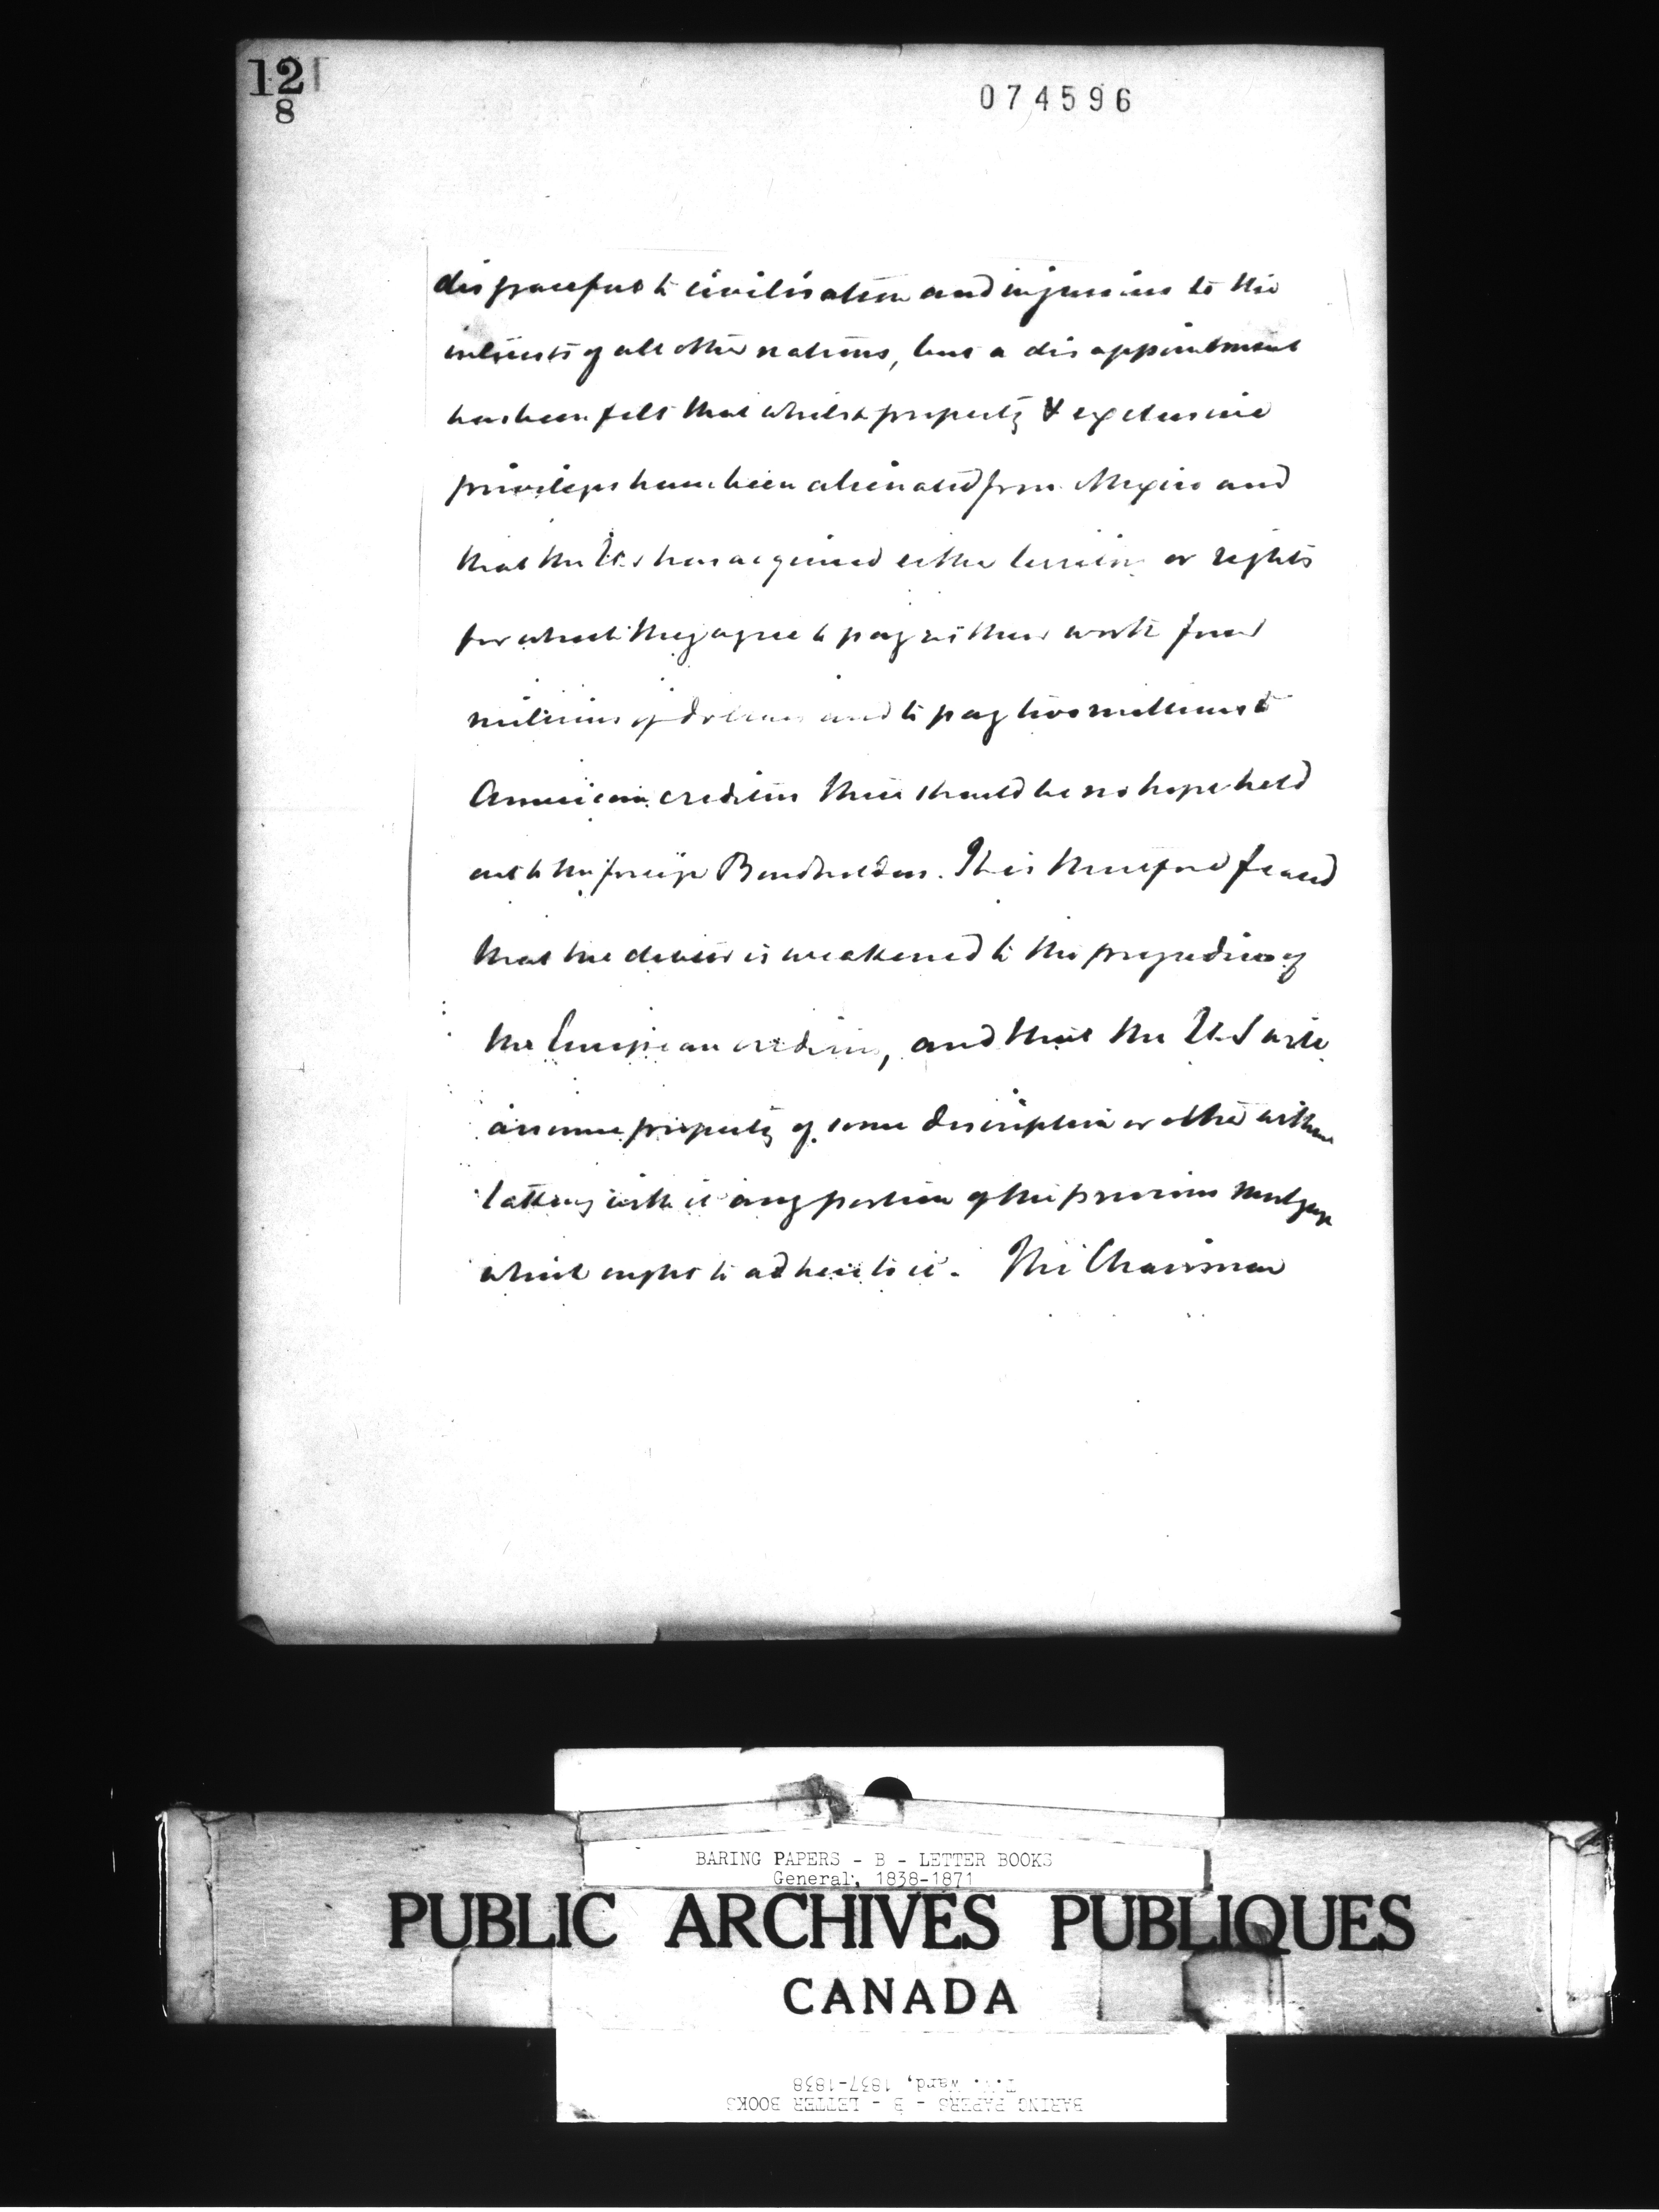 121
8
074596
disgraceful to civilisation and injurious to the
interests of all other nations, but a disappointment
has been felt that whilst property & exclusive
privileges have been alienated from Mexico and
that the U.S has acquired either territory or rights
for which they agree to pay in their worth four
millions of dollars and to pay two millions to
American creditors there should be no hope held
out to the foreign Bondholders. It is therefore feared
that the debtor is weakened to the prejudice of
the European creditors, and that the U.S will
assume property of some description or other without
taking with it any portion of the previous mortgage
which ought to adhere to it. The Chairman
BARING PAPERS - B - LETTER BOOKS
General, 1838-1871
PUBLIC ARCHIVES PUBLIQUES
CANADA
BARING PAPERS - B - LETTER BOOKS
T.W. Ward, 1837-1838